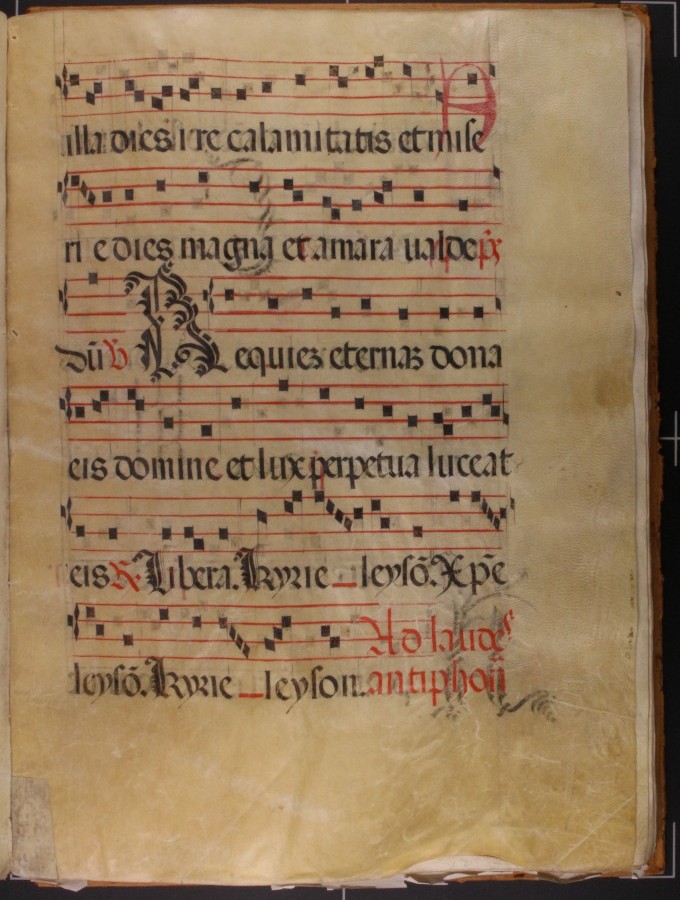 illa dies ire calamitatis et mise
ri e dies magna et amara ualde p̃x
dũ ꝟ Requiez eternaz dona
eis domine et lux perpetua luceat
eis ℞. Libera. Kyrie leysõ. Xpẽ
leysõ. Kyrie leyson. Ad laudes
antiphoñ